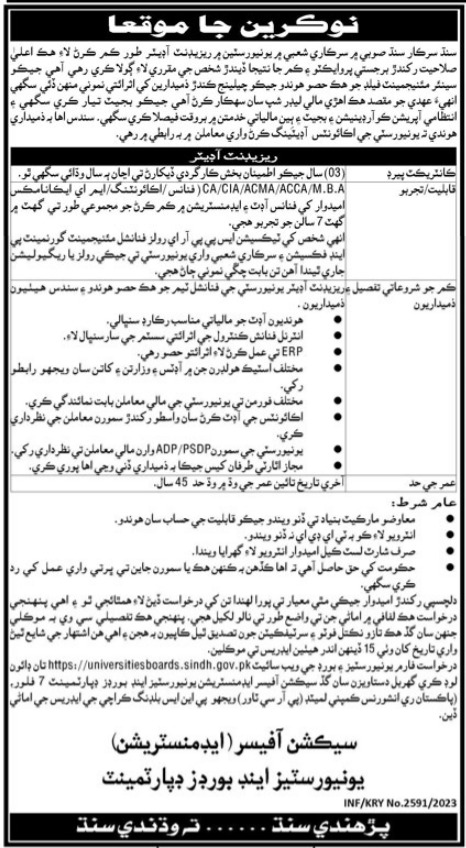 نوڪرين جا موقعا
سنڌ سرڪار سنڌ صوبي ۾ سرڪاري شعبي ۾ يونيورسٽين ۾ ريزيڊنٽ آڊيٽر طور ڪم ڪرڻ لاءِ هڪ اعليٰ
صلاحيت رکندڙ برجستي پروايڪٽو ۽ ڪم جا نتيجا ڏيندڙ شخص جي مقرري لاءِ ڳولا ڪري رهي آهي جيڪو
سينئر مئنيجمينٽ فيلڊ جو هڪ حصو هوندو جيڪو چيلينج ڪندڙ ذميدارين کي اثرائتي نموني منهن ڏئي سگهي
انهيءَ عهدي جو مقصد هڪ اهڙي مالي ليڊر شپ سان سهڪار ڪرڻ آهي جيڪو بجيٽ تيار ڪري سگهي ۽
انتظامي آپريشن ڪوآرڊينيشن ۽ بجيٽ ۽ ٻين مالياتي خدمتن ۾ بروقت فيصلا ڪري سگهي. سندس اها به ذميداري
هوندي ته يونيورسٽي جي اڪائونٽس آڊيٽنگ ڪرڻ واري معاملن ۾ به رابطي ۾ رهي.
ريزيڊنٽ آڊيٽر
ڪانٽريڪٽ پيرڊ (03) سال جيڪو اطمينان بخش ڪارڪردگي ڏيکارڻ تي اڃان به سال وڌائي سگهي ٿو.
قابليت/تجربو CA/CIA/ACMA/ACCA/M.B.A (فنانس/اڪائونٽنگ/ايم اي ايڪانامڪس
اميدوار کي فنانس آڊٽ ۽ ايڊمنسٽريشن ۾ ڪم ڪرڻ جو مجموعي طور تي گهٽ ۾
گهٽ 7 سالن جو تجربو هجي.
انهي شخص کي ٽيڪسيشن ايس پي پي آر اي رولز فنانشل مئنيجمينٽ گورنمينٽ پي
اينڊ فڪسيشن ۽ سرڪاري شعبي واري يونيورسٽي تي جيڪي رولز يا ريگيوليشن
جاري ٿيندا آهن تن بابت چڱي نموني ڄاڻ هجي.
ڪم جو شروعاتي تفصيل ۽ ذميداريون ريزيڊنٽ آڊيٽر يونيورسٽي جي فنانشل ٽيم جو هڪ حصو هوندو ۽ سندس هيٺيون
ذميداريون.
• هونديون آڊٽ جو مالياتي مناسب رڪارڊ سنڀالي.
• انٽرنل فنانش ڪنٽرول جي اثرائتي سسٽم جي سارسنڀال لاءِ.
• ERP تي عمل ڪرڻ لاءِ اثرائتو حصو رهي.
• مختلف اسٽيڪ هولڊرن جن ۾ آڊٽس ۽ وزارتن ۽ کاتن سان ويجهو رابطو
رکي.
• مختلف فورمن تي يونيورسٽي جي مالي معاملن بابت نمائندگي ڪري.
• اڪائونٽس جي آڊٽ ڪرڻ سان واسطو رکندڙ سمورن معاملن جي نظرداري
ڪري.
• يونيورسٽي جي سمورن ADP/PSDP وارن مالي معاملن تي نظرداري رکي.
• مجاز اٿارٽي طرفان کيس جيڪا به ذميداري ڏني وڃي اها پوري ڪري.
عمر جي حد آخري تاريخ تائين عمر جي وڌ ۾ وڌ حد 45 سال.
عام شرط:
• معاوضو مارڪيٽ بنياد تي ڏنو ويندو جيڪو قابليت جي حساب سان هوندو.
• انٽرويو لاءِ ڪو به ٽي اي ڊي اي نه ڏنو ويندو.
• صرف شارٽ لسٽ ڪيل اميدوار انٽرويو لاءِ گهرايا ويندا.
• حڪومت کي حق حاصل آهي ته اها ڪڏهن به ڪنهن هڪ يا سمورن جاين تي ڀرتي واري عمل کي رد
ڪري سگهي.
دلچسپي رکندڙ اميدوار جيڪي مٿي معيار تي پورا لهندا تن کي درخواست ڏيڻ لاءِ همٿائجي ٿو ۽ اهي پنهنجي
درخواست هڪ لفافي ۾ اماڻي جن تي واضع طور تي نالو لکيل هجي. پنهنجي هڪ تفصيلي سي وي به موڪلي
جنهن سان گڏ هڪ تازو نڪتل فوٽو ۽ سرٽيفڪيٽن جون تصديق ٿيل ڪاپيون به هجن ۽ اهي هن اشتهار جي شايع ٿيڻ
واري تاريخ کان وٺي 15 ڏينهن اندر هيٺين ايڊريس تي موڪلين.
درخواست فارم يونيورسٽيز ۽ بورڊ جي ويب سائيٽ https://universitiesboards.sindh.gov.pk تان ڊائون
لوڊ ڪري گهربل دستاويزن سان گڏ سيڪشن آفيسر ايڊمنسٽريشن يونيورسٽيز اينڊ بورڊز ڊپارٽمينٽ 7 فلور،
(پاڪستان ري انشورنس ڪمپني لميٽڊ (پي آر سي ٽاور) ويجهو پي ايس بلڊنگ ڪراچي جي ايڊريس جي اماڻي
ڏين.
سيڪشن آفيسر (ايڊمنسٽريشن)
يونيورسٽيز اينڊ بورڊز ڊپارٽمينٽ
INF/KRY No.2591/2023
پڙهندي سنڌ ...... ته وڌندي سنڌ